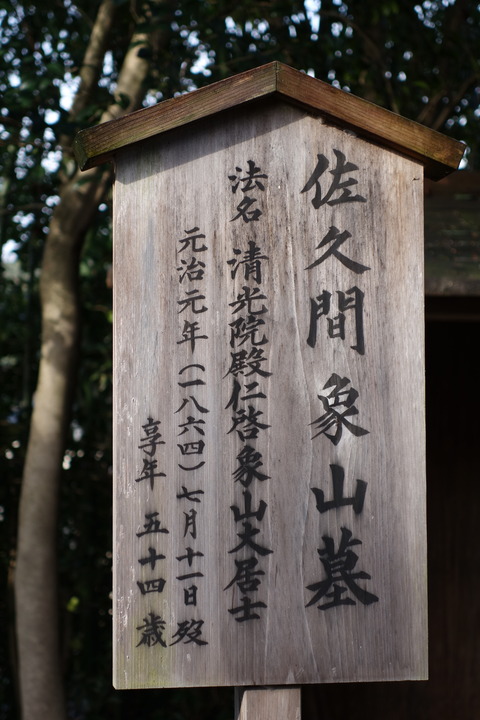 佐久間象山墓
法名 清光院殿仁啓象山大居士
元治元年(一八六四)七月十一日歿
享年 五十四歳